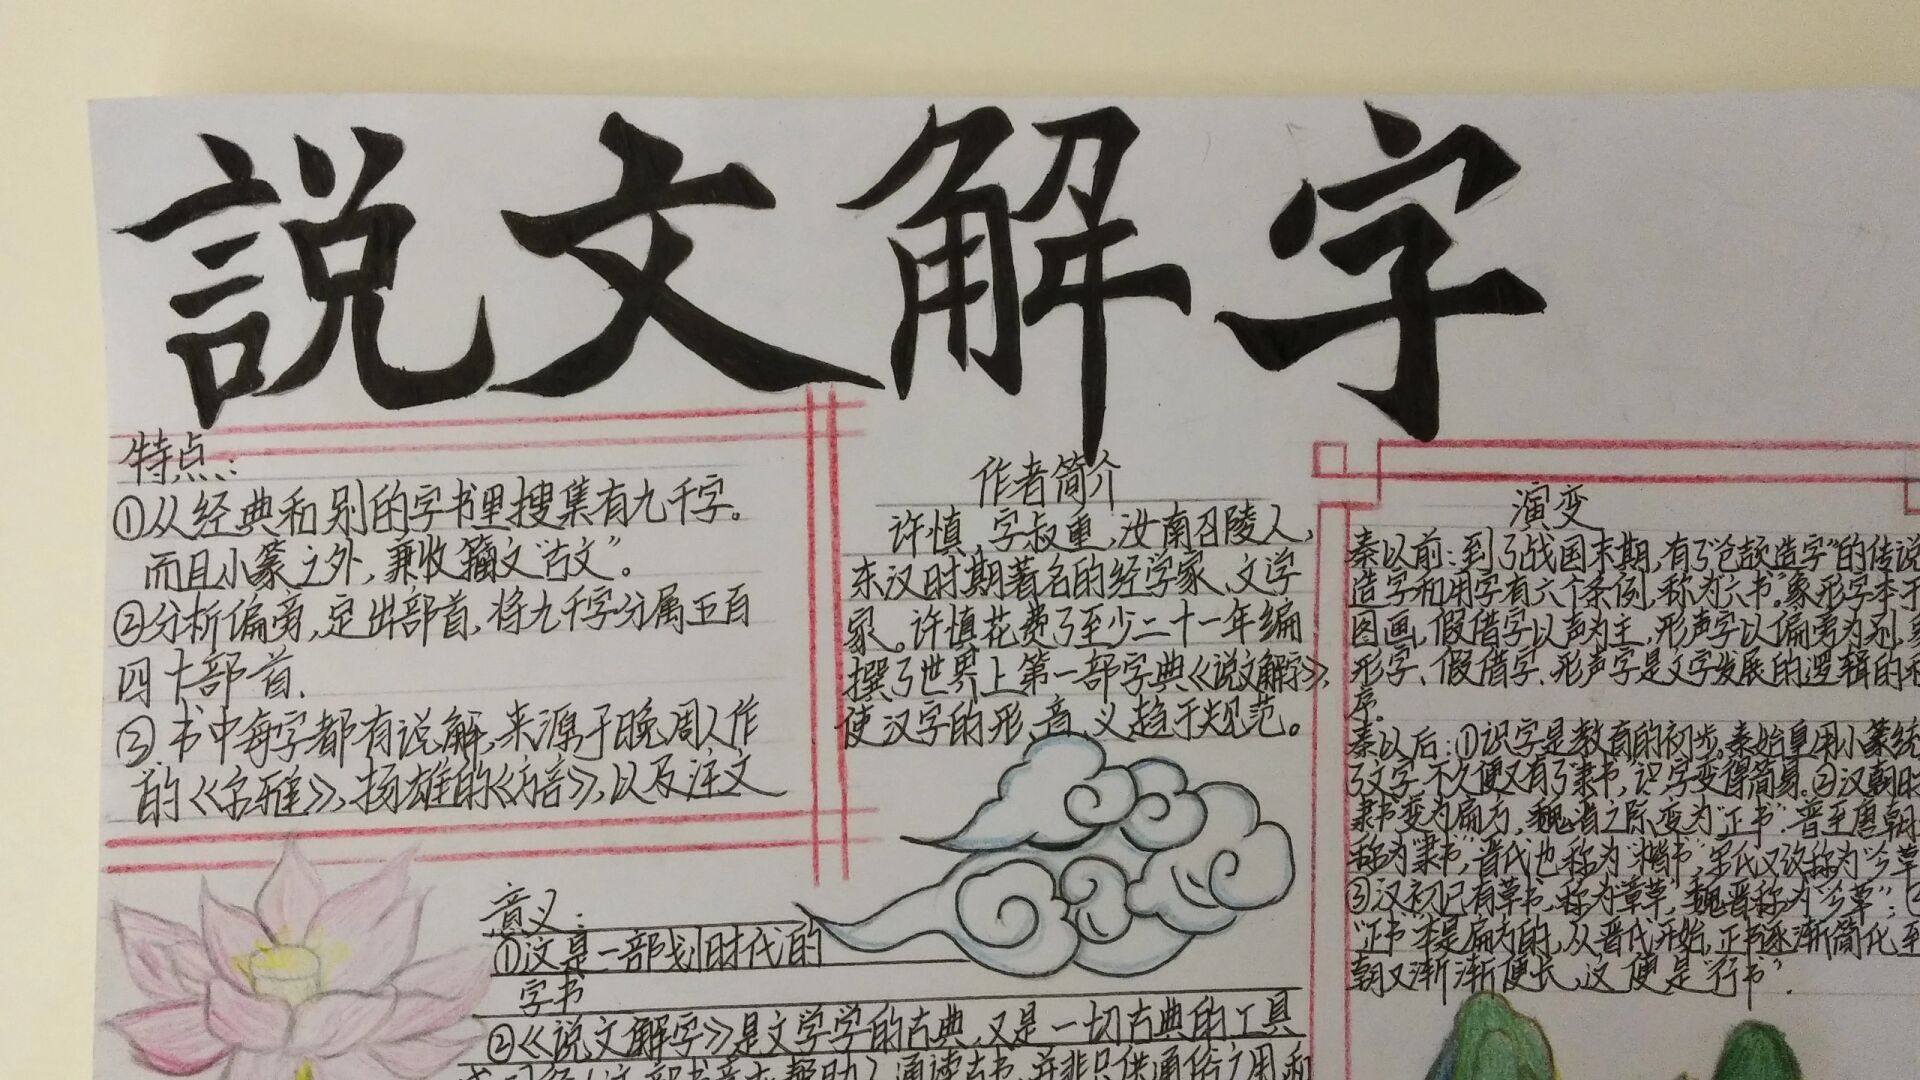 説文解字
特点：
①从经典和别的字书里搜集有九千字。
而且小篆之外，兼收籀文“古文”。
②分析偏旁，定出部首，将九千字分属五百
四十部首．
③．书中每字都有说解，来源于晚周人作
的《尔雅》，扬雄的《方言》，以及注文
作者简介
许慎，字叔重，汝南召陵人，
东汉时期著名的经学家、文学
家。许慎花费了至少二十一年编
撰了世界上第一部字典《说文解字》，
使汉字的形、音、义趋于规范。
演变
秦以前：到了战国末期，有了“仓颉造字”的传说
造字和用字有六个条例，称为“六书”。象形字本于
图画，假借字以声为主，形声字以偏旁为别，象
形字、假借字、形声字是文字发展的逻辑的程
序。
秦以后：①识字是教育的初步，秦始皇用小篆统
了文字，不久便又有了“隶书”，识字变得简易。②汉朝时
隶书变为扁方，魏晋之际，变为“正书”．晋至唐朝
称为“隶书”，晋代也称为“楷书”，宋代又改称为“今草
③汉初已有草书，称为“章草”，魏晋称为“今草”；④
“正书”本是扁方的，从晋代开始，正书逐渐简化，至
朝又渐渐便长，这便是“行书”．
意义：
①这是一部划时代的
字书
②《说文解字》是文学学的古典，又是一切古典的工具